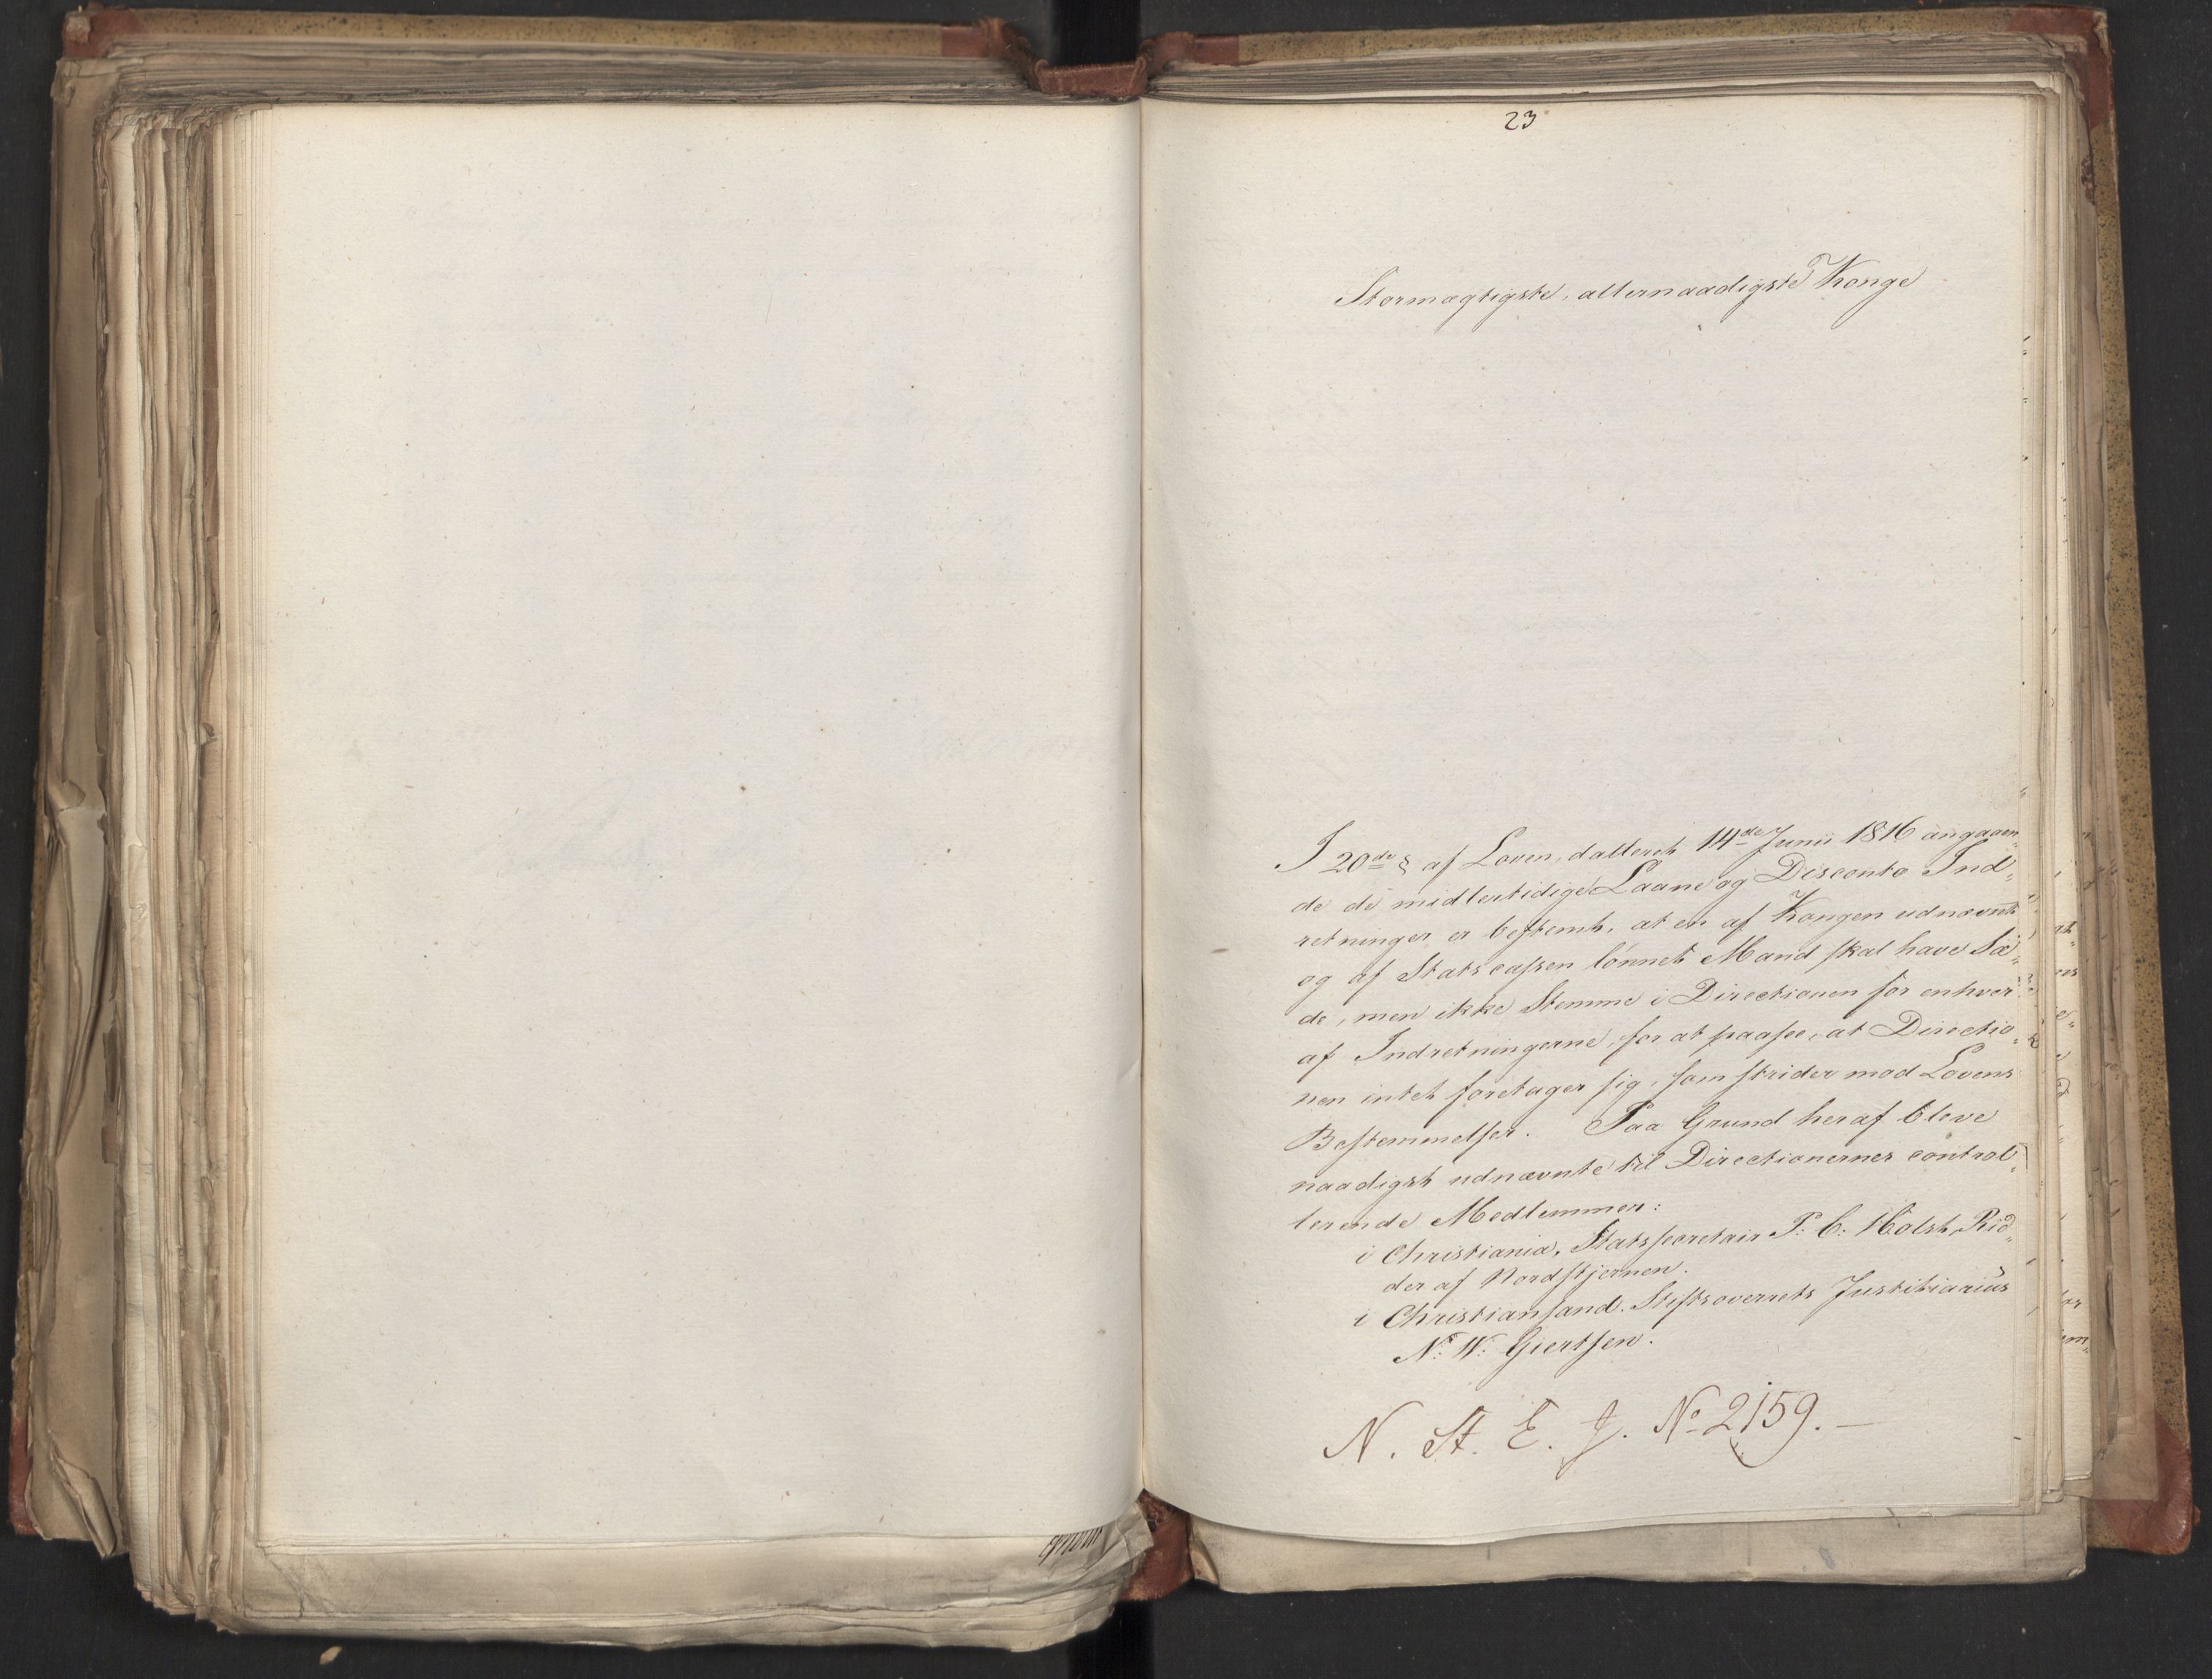 23
Stormægtigste, allernaadigste Konge
I 20de § af Loven, datteret 14de Junii 1816 angaaen„
de de midlertidige Laane og Disconto Ind„
retninger er bestemt, at en af Kongen udnævnt
og af Statscassen lønnet Mand skal have Sæ„
de, men ikke Stemme i Directionen for enhver
af Indretningerne, for at paasee, at Directio„
nen intet foretager sig, som strider mod Lovens
Bestemmelser. Paa Grund heraf bleve
naadigst udnævnte til Directionernes control„
lerende Medlemmer:
i Christiania, Statssecretair P: C: Holst, Rid„
der af Nordstjernen.
i Christiansand. Stiftsoverrets Justitiarius
N: W: Giertsen.
N. St. E. J. No 2159.—